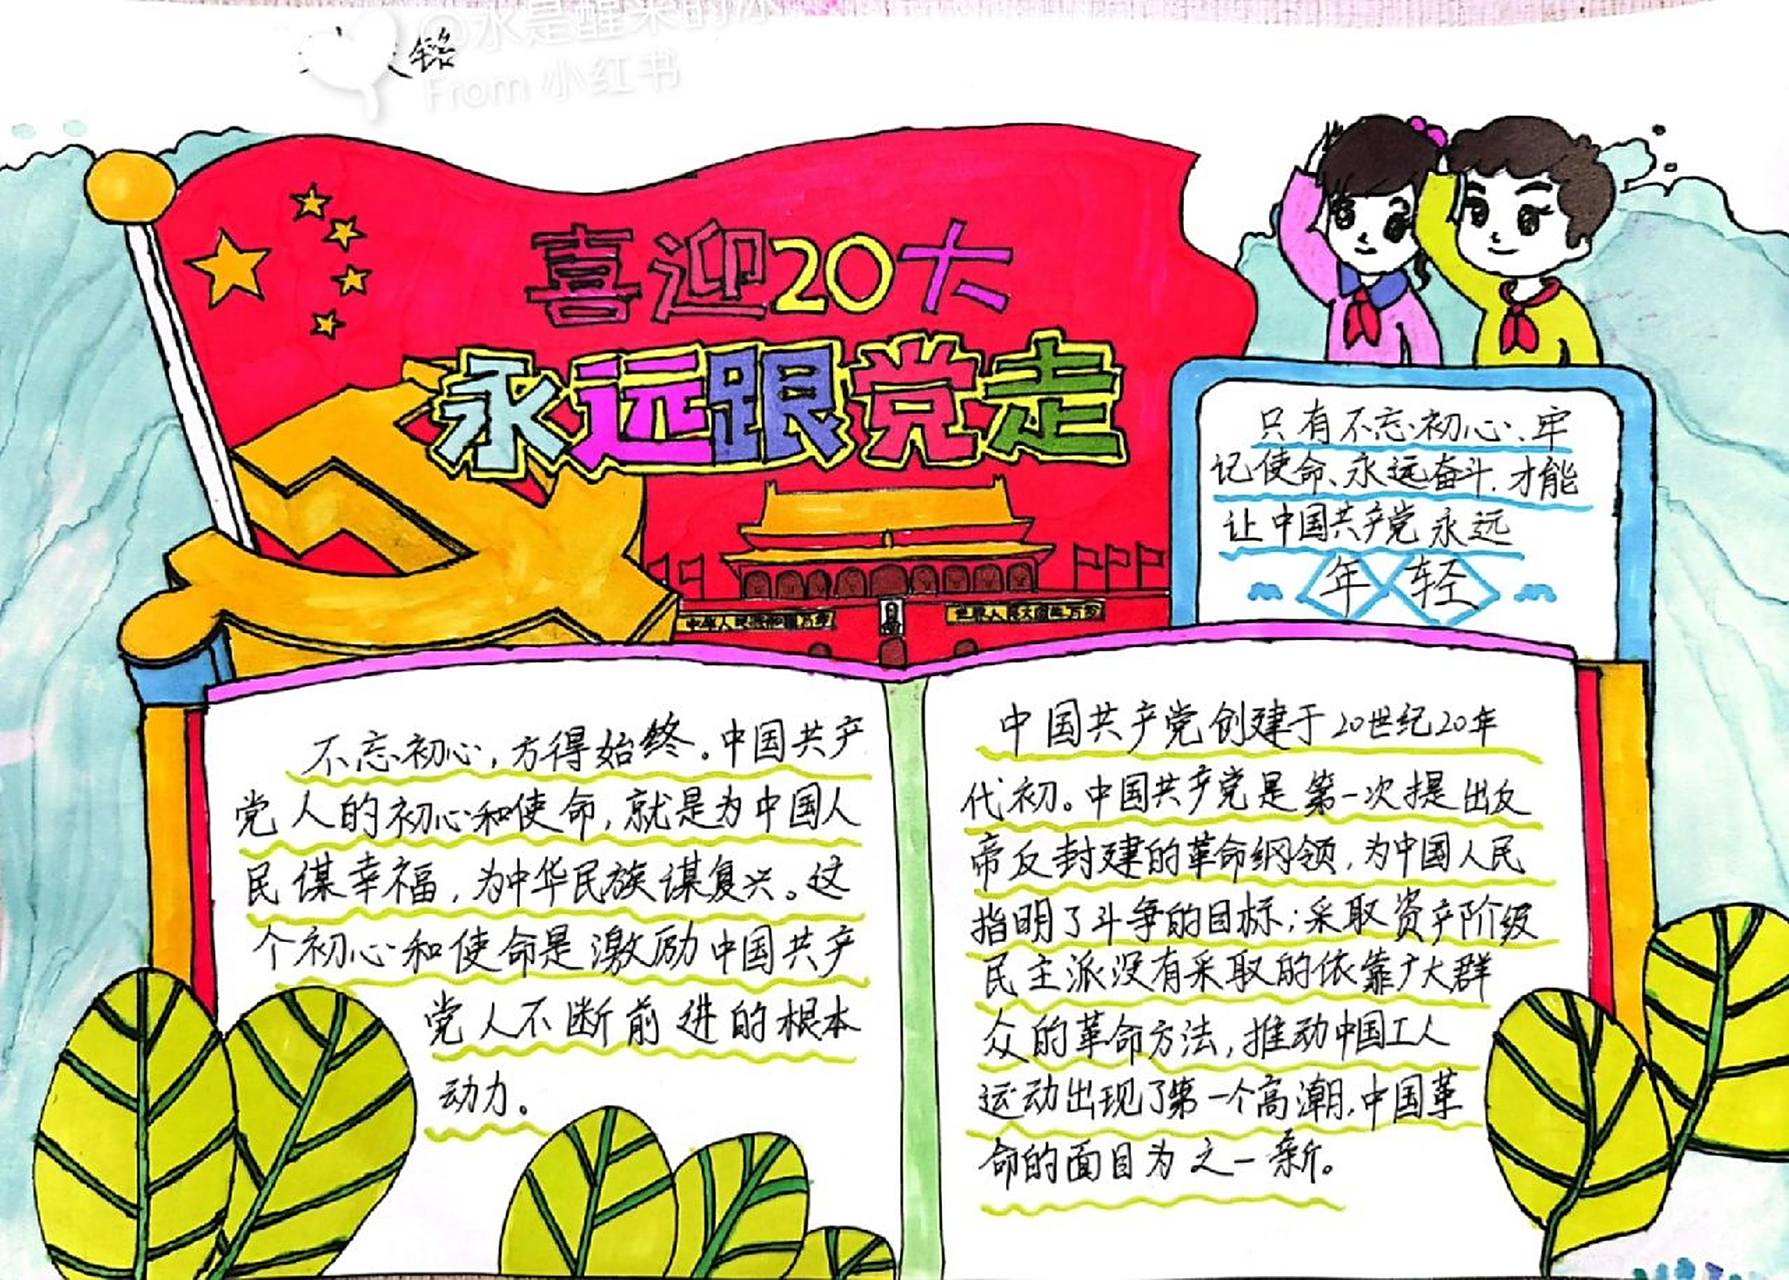 @水是醒来的冰
From 小红书
喜迎20大
永远跟党走
只有不忘初心、牢
记使命、永远奋斗,才能
让中国共产党永远
年轻
中华人民共和国万岁
世界人民大团结万岁
不忘初心,方得始终。中国共产
党人的初心和使命,就是为中国人
民谋幸福,为中华民族谋复兴。这
个初心和使命是激励中国共产
党人不断前进的根本
动力。
中国共产党创建于20世纪20年
代初。中国共产党是第一次提出反
帝反封建的革命纲领,为中国人民
指明了斗争的目标;采取资产阶级
民主派没有采取的依靠广大群
众的革命方法,推动中国工人
运动出现了第一个高潮,中国革
命的面目为之一新。